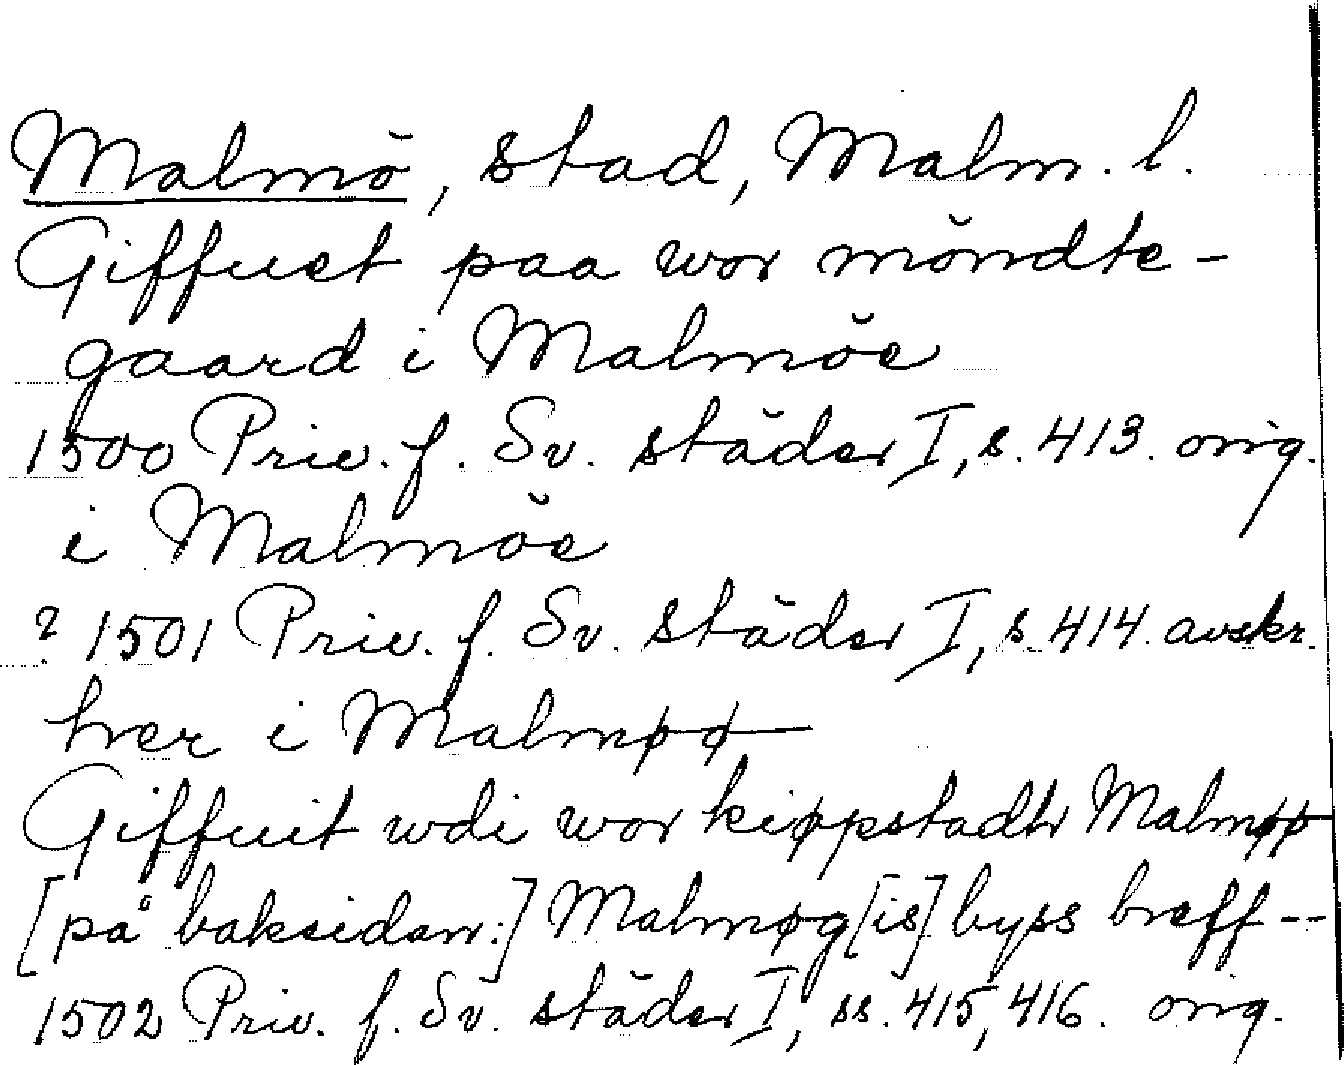 Malmö, stad, Malm. l.
Giffuet paa wor möndte-
gaard i Malmöe
1500 Priv. f. Sv. städer I, s. 413. orig.
i Malmöe
? 1501 Priv. f. Sv. städer I, s. 414. avskr.
hver i Malmøø
Giffuit wdi wor kiøpstadtr Malmøø
[på baksidan:] Malmøg[is] byss breff--
1502 Priv. f. Sv. städer I, ss. 415, 416. orig.